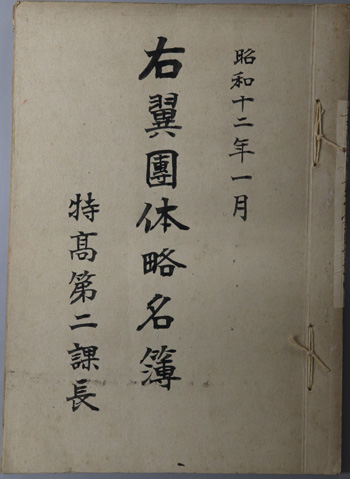 昭和十二年一月
右翼團体略名簿
特高第二課長